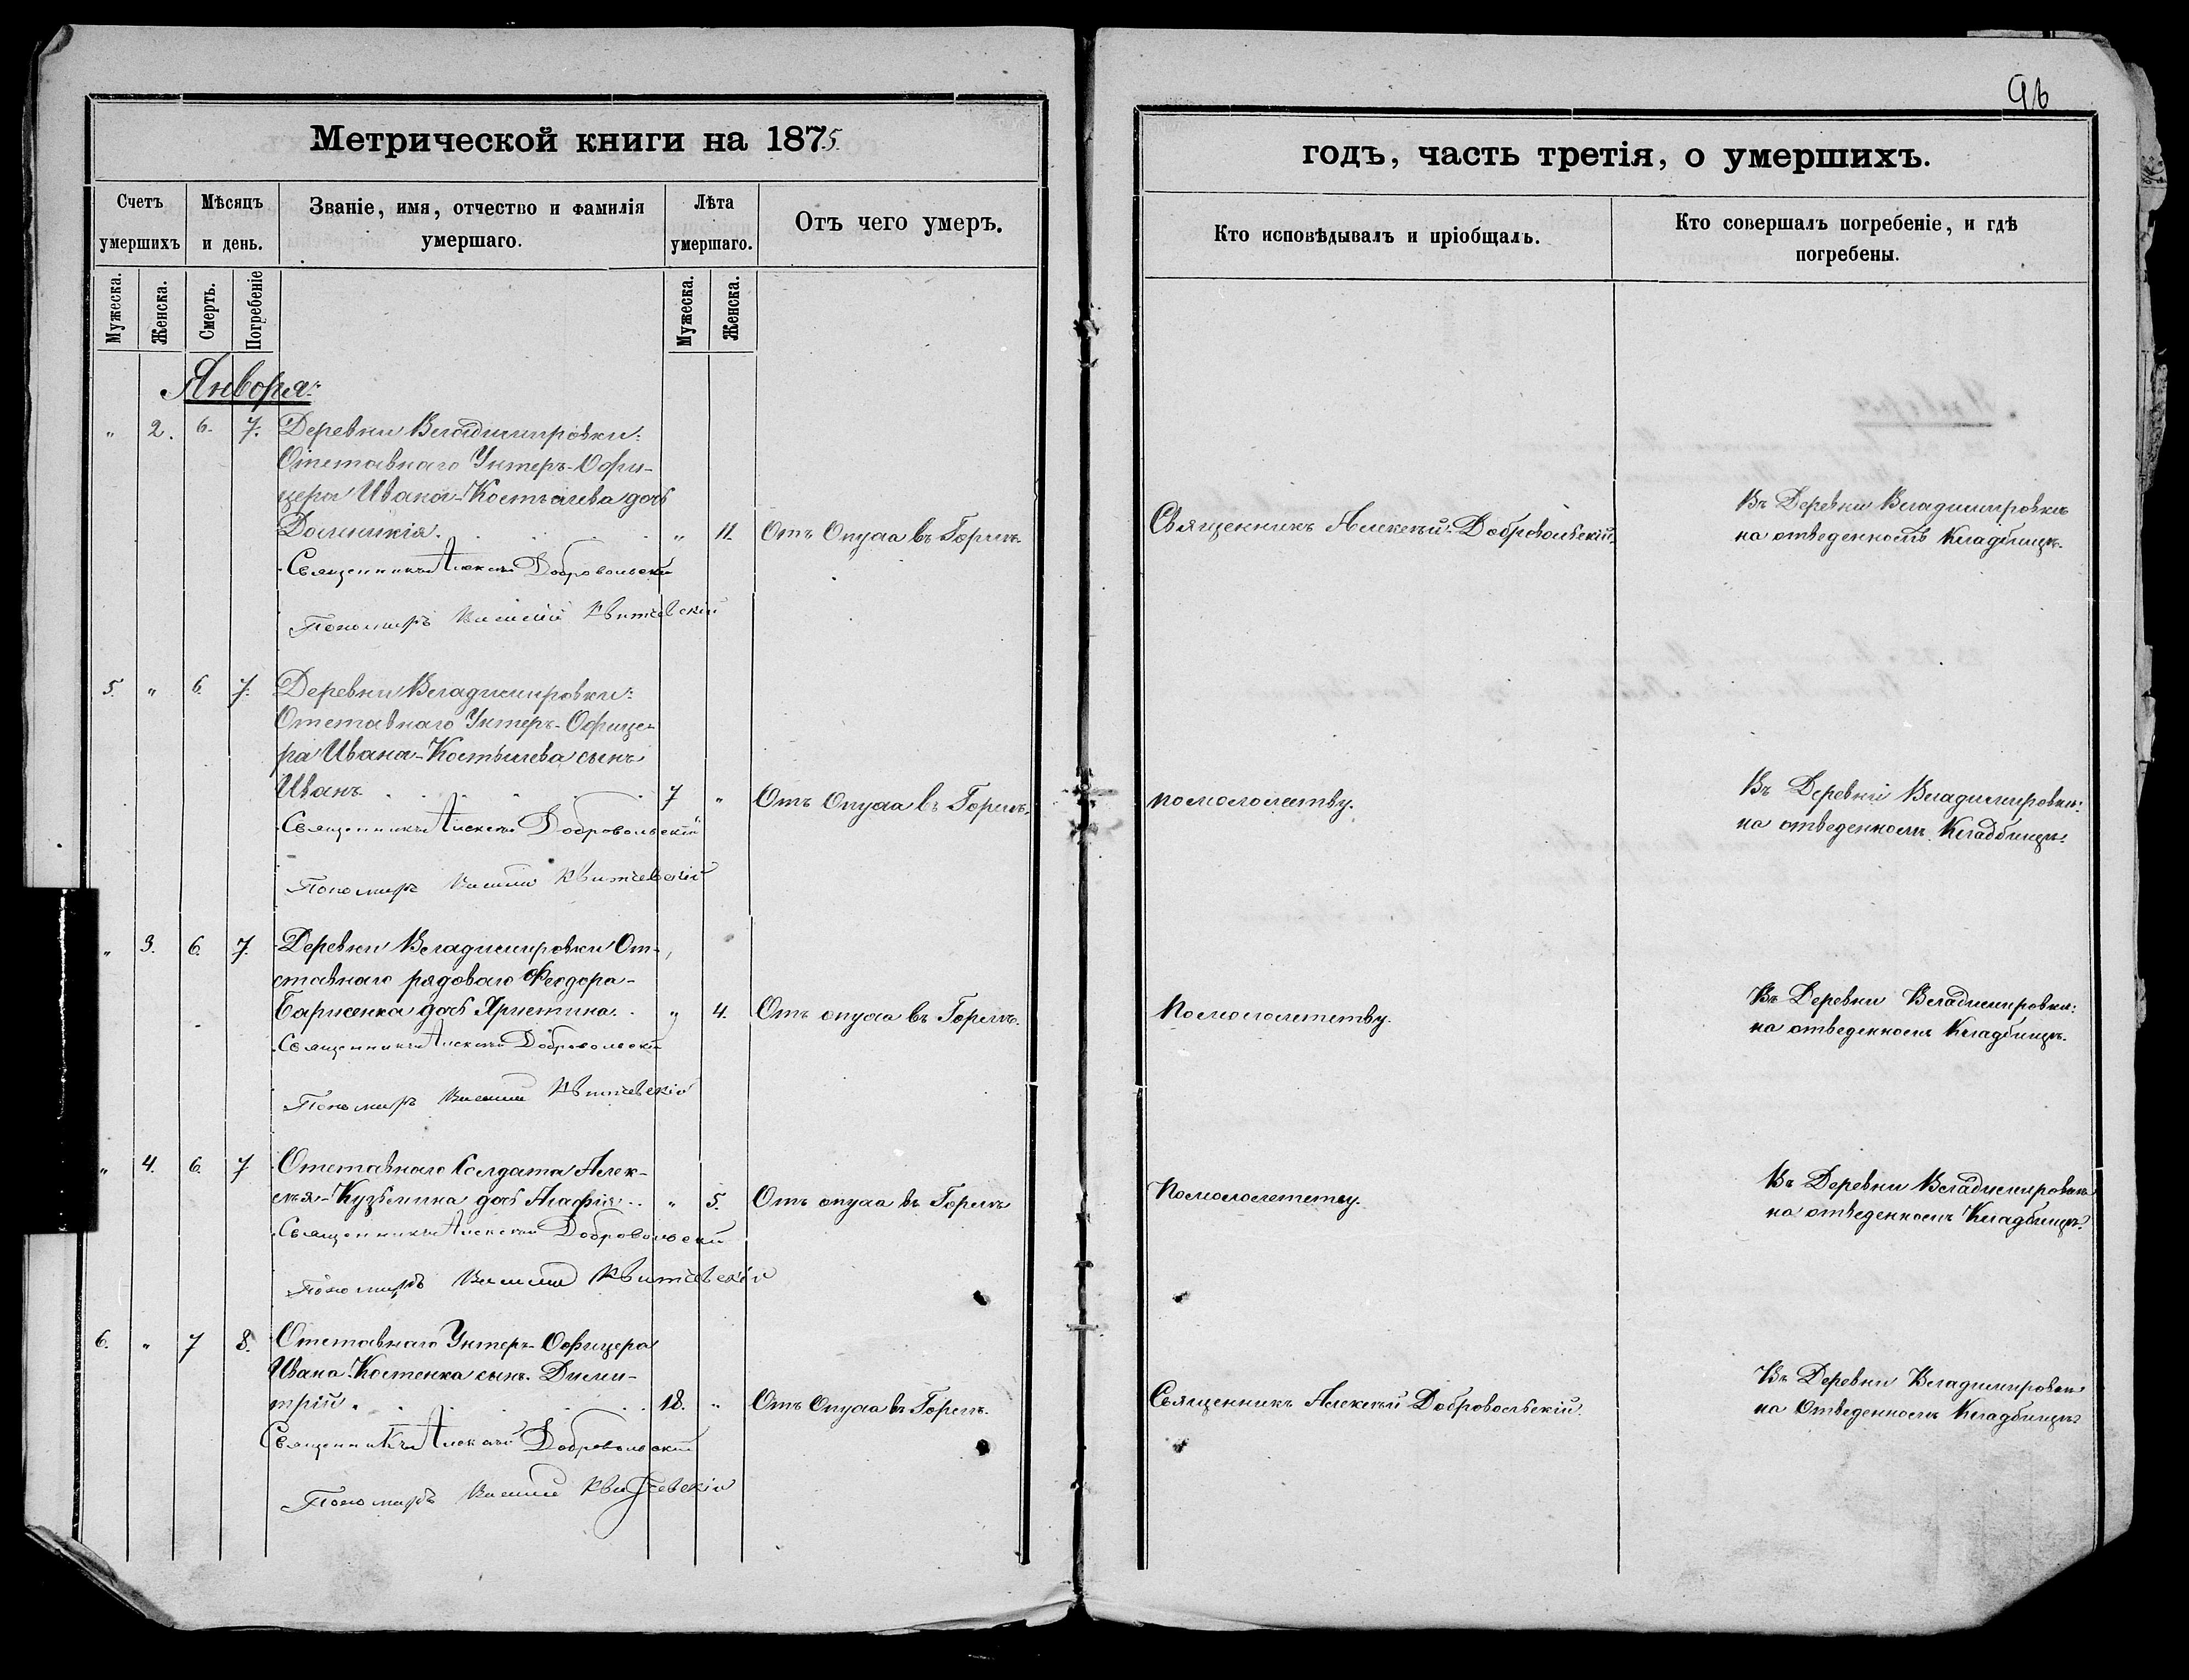 96
Метрической книги на 1875.
годъ, часть третія, о умершихъ.
Счетъ умершихъ
Мѣсяцъ и день.
Званіе, имя, отчество и фамилія умершаго.
Лѣта умершаго.
Отъ чего умеръ.
Кто исповѣдывалъ и пріобщалъ.
Кто совершалъ погребеніе, и гдѣ погребены.
Мужеска.
Женска.
Смерть.
Погребеніе
Мужеска.
Женска.
Января:
" 2. 6. 7. Деревни Владимировки:
Отставнаго Унтеръ-Офи-
цера Ивана-Костылева дочь
" 11. Отъ Опуха въ Горлѣ.
Священникъ Алексѣй Добровольскій.
Въ Деревни Владимировкѣ
на отведенномъ Кладбищѣ.
Священникъ Алексѣй Добровольскій
Пономарь Василій Квитчевскій
5. " 6. 7. Деревни Владимировки:
Отставнаго Унтеръ-Офице-
ра Ивана-Костылева сынъ
Иванъ 7 " Отъ Опуха въ Горлѣ.
помололетву.
Въ Деревни Владимировки:
на отведенномъ Кладбищѣ.
Священникъ Алексѣй Добровольскій
Пономарь Василій Квитчевскій
" 3. 6. 7. Деревни Владимировки От-
ставнаго рядоваго Феодора-
Барисенка дочь Христина. " 4. Отъ опуха въ Горлѣ.
Помололетству.
Въ Деревни Владимировки:
на отведенномъ Кладбищѣ.
Священникъ Алексѣй Добровольскій
Пономарь Василій Квитчевскій
" 4. 6. 7 Отставнаго Солдата Алек-
сѣя-Кузьмина дочь Агафія.. " 5. Отъ опуха въ Горлѣ
Помололететву.
Въ Деревни Владимировкѣ
на отведенномъ Кладбищѣ.
Священникъ Алексѣй Добровольскій
Пономарь Василій Квитчевскій
6. " 7 8. Отставнаго Унтеръ-Офицера
Ивана Костенка сынъ. Дими-
трій. 18. " Отъ Опуха въ Горлѣ.
Священникъ Алексѣй Добровольскій.
Въ Деревни Владимировкѣ
на Отведенномъ Кладбищѣ
Священникъ Алексѣй Добровольскій
Пономарь Василій Квитчевскій